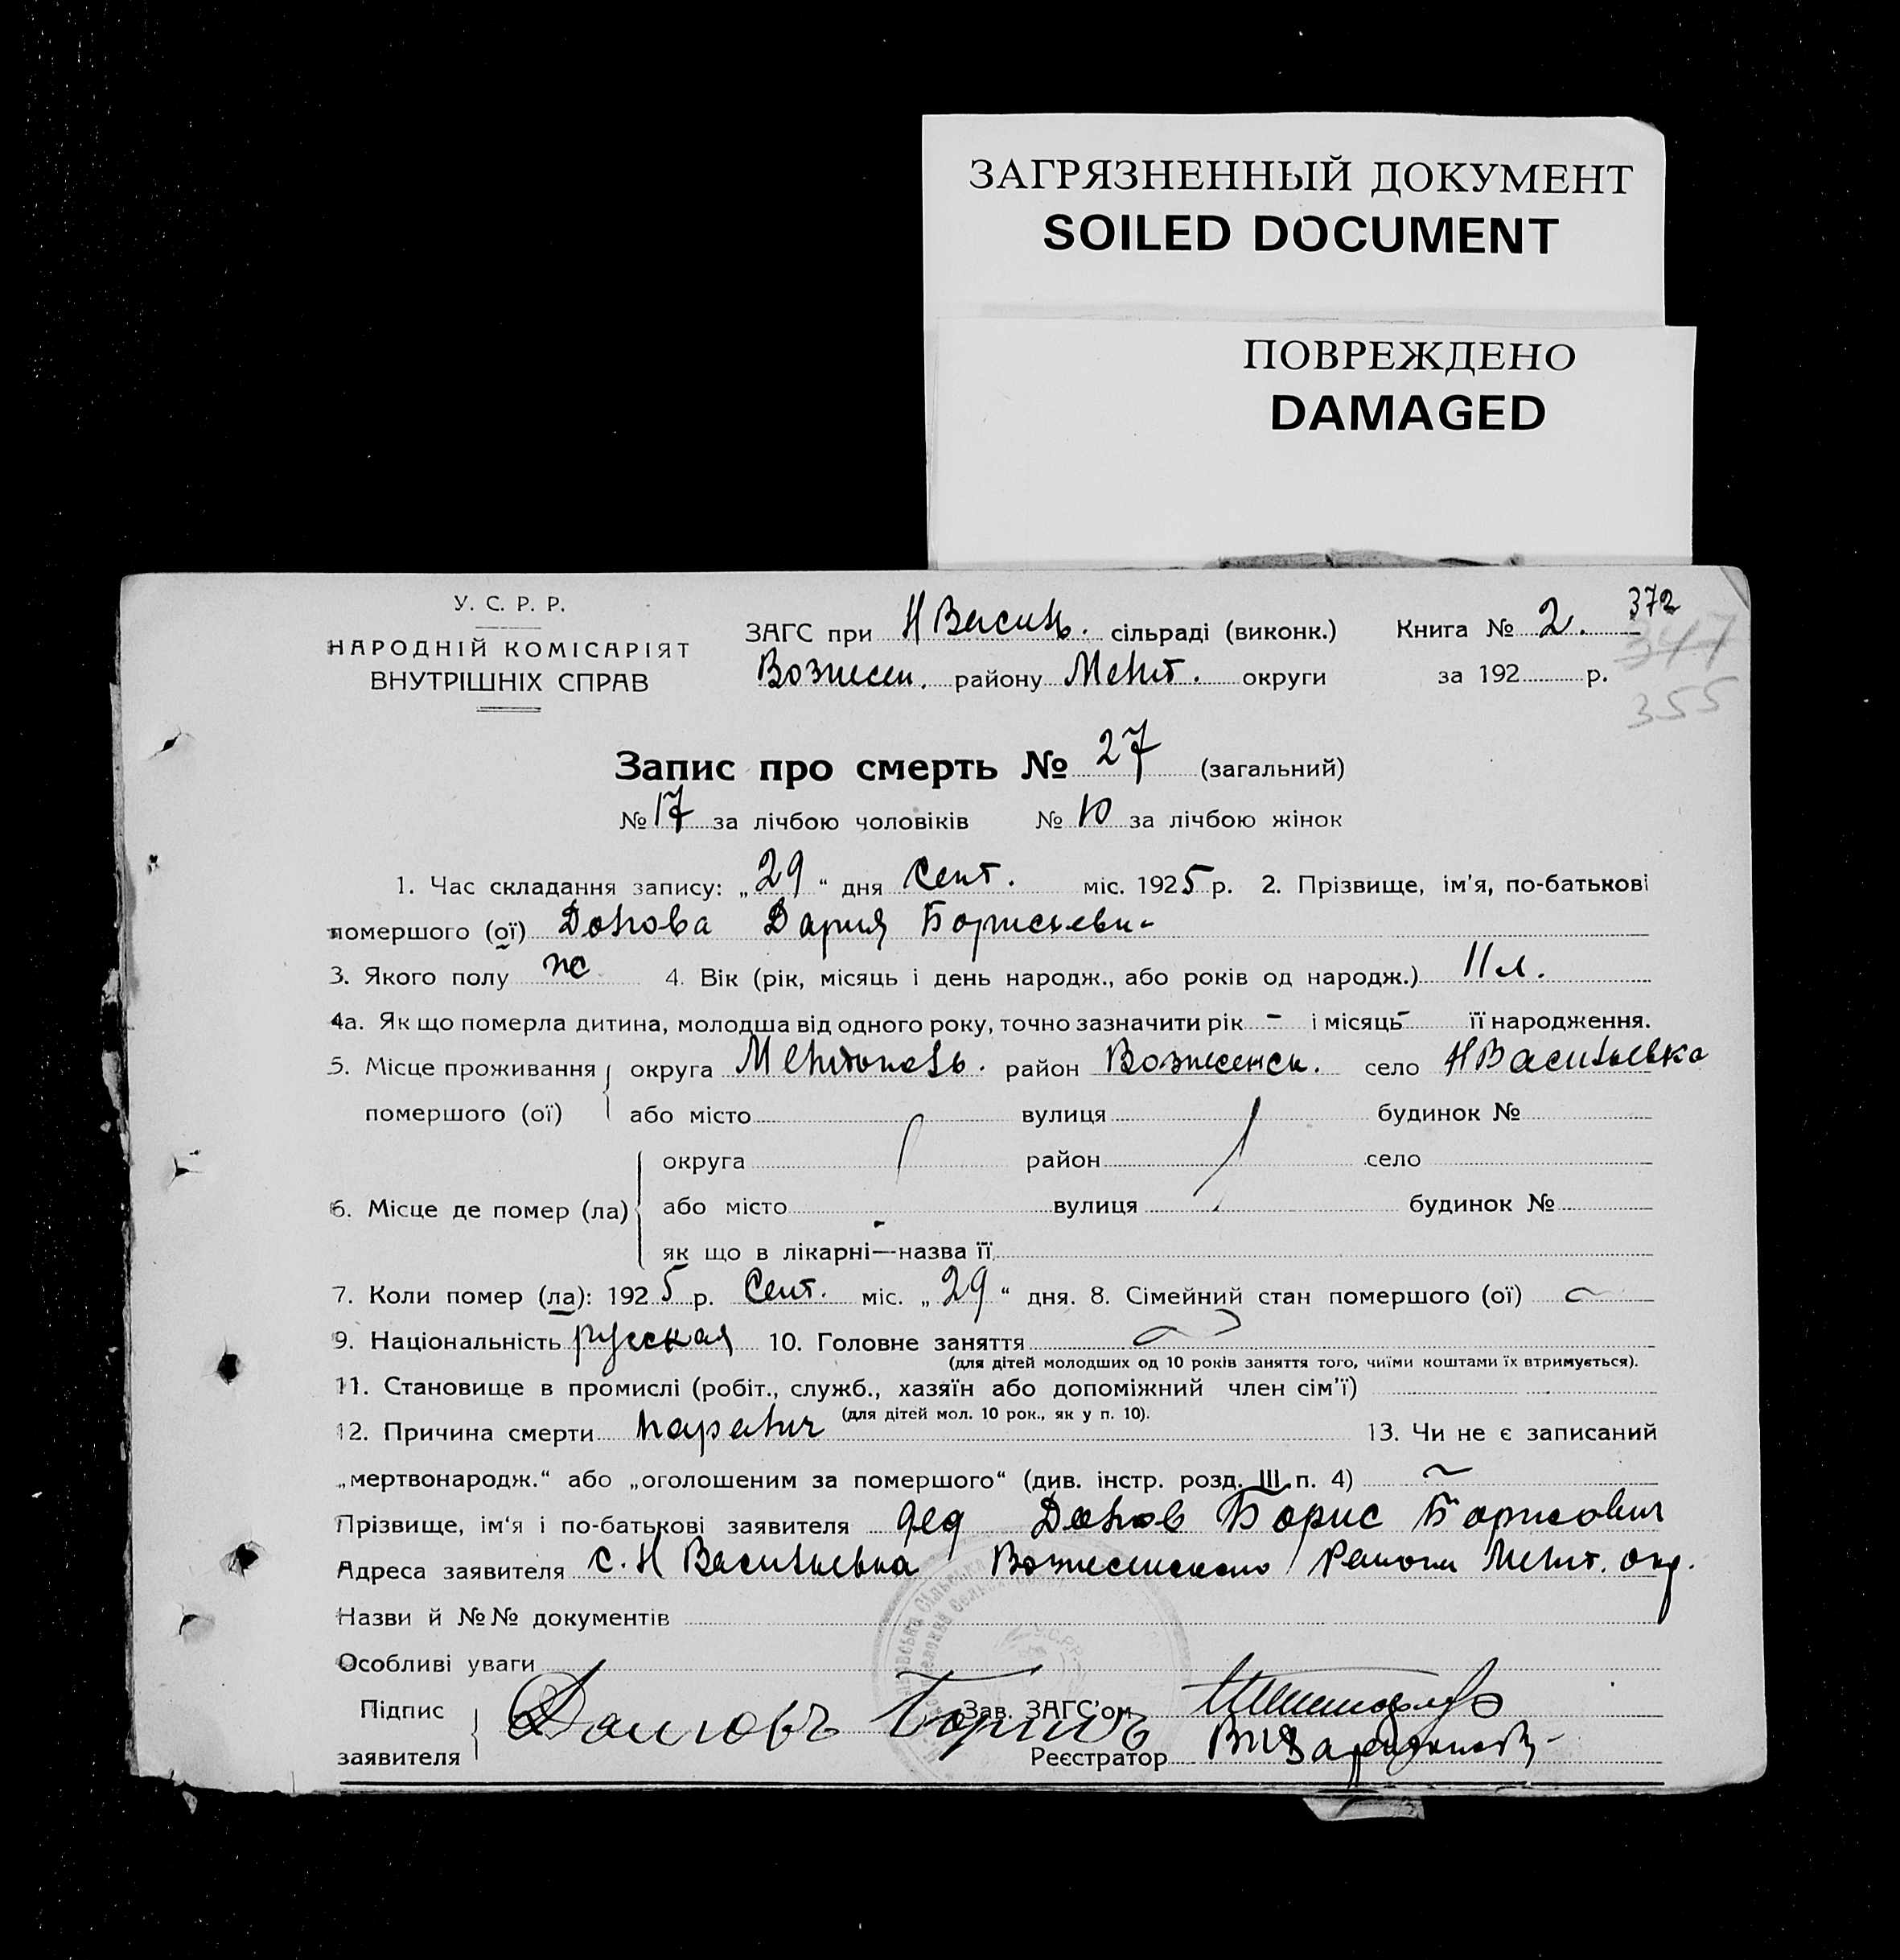 ЗАГРЯЗНЕННЫЙ ДОКУМЕНТ
SOILED DOCUMENT
ПОВРЕЖДЕНО
DAMAGED
372
У. С. Р. Р.
НАРОДНІЙ КОМІСАРІЯТ
ВНУТРІШНІХ СПРАВ
ЗАГС при Н Василь. сільраді (виконк.) Книга № 2. 347
Вознесен. району Меліт. округи за 192 р. 355
Запис про смерть № 27 (загальний)
№ 17 за лічбою чоловіків № 10 за лічбою жінок
1. Час складання запису: „29“ дня Сент. міс. 1925 р. 2. Прізвище, ім’я, по-батькові
помершого (ої) Долова Дария Борисьевн
3. Якого полу ж 4. Вік (рік, місяць і день народж., або років од народж.) 11 л.
4а. Як що померла дитина, молодша від одного року, точно зазначити рік - і місяць - її народження.
5. Місце проживання округа Мелитополь. район Вознесенск. село Н Васильевка
помершого (ої) або місто вулиця будинок №
округа район село
6. Місце де помер (ла) або місто вулиця будинок №
як що в лікарні—назва її
7. Коли помер (ла): 1925 р. Сент. міс. „29“ дня. 8. Сімейний стан помершого (ої)
9. Національність русская 10. Головне заняття
(для дітей молодших од 10 років заняття того, чиїми коштами їх втримується).
11. Становище в промислі (робіт., служб., хазяїн або допоміжний член сім’ї)
(для дітей мол. 10 рок., як у п. 10).
12. Причина смерти паралич 13. Чи не є записаний
„мертвонародж.“ або „оголошеним за помершого“ (див. інстр. розд. III п. 4)
Прізвище, ім‘я і по-батькові заявителя дед Долов Борис Борисович
Адреса заявителя с. Н Васильевка Вознесенского Района Мелит. окр.
Назви й №№ документів
Особливі уваги
Підпис
заявителя
Зав. ЗАГС’ом
Реєстратор